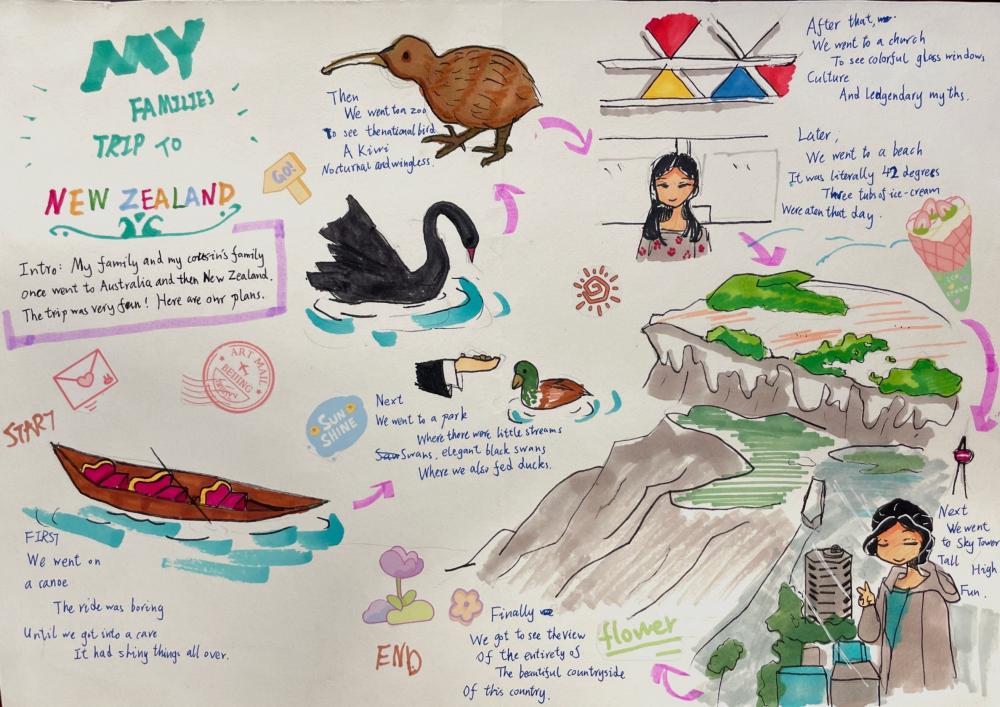 MY
FAMILIES
TRIP TO
NEW ZEALAND
Intro: My family and my cousin's family
once went to Australia and then New Zealand.
The trip was very fun! Here are our plans.
ART MAIL
BEIJING
START
FIRST
We went on
a canoe
The ride was boring
Until we got into a cave
It had shiny things all over.
SUN
SHINE
Next
We went to a park
Where there were little streams
Swans, elegant black swans
Where we also fed ducks.
GO!
Then
We went to a zoo
To see the national bird
A Kiwi
Nocturnal and wingless.
After that,
We went to a church
To see colorful glass windows
Culture
And ledgendary myths.
Later,
We went to a beach
It was literally 42 degrees
Three tubs of ice-cream
Were aten that day.
Next
We went
to Sky Tower
Tall
High
Fun.
Finally
We got to see the view
Of the entirety of
The beautiful countryside
Of this country.
flower
END